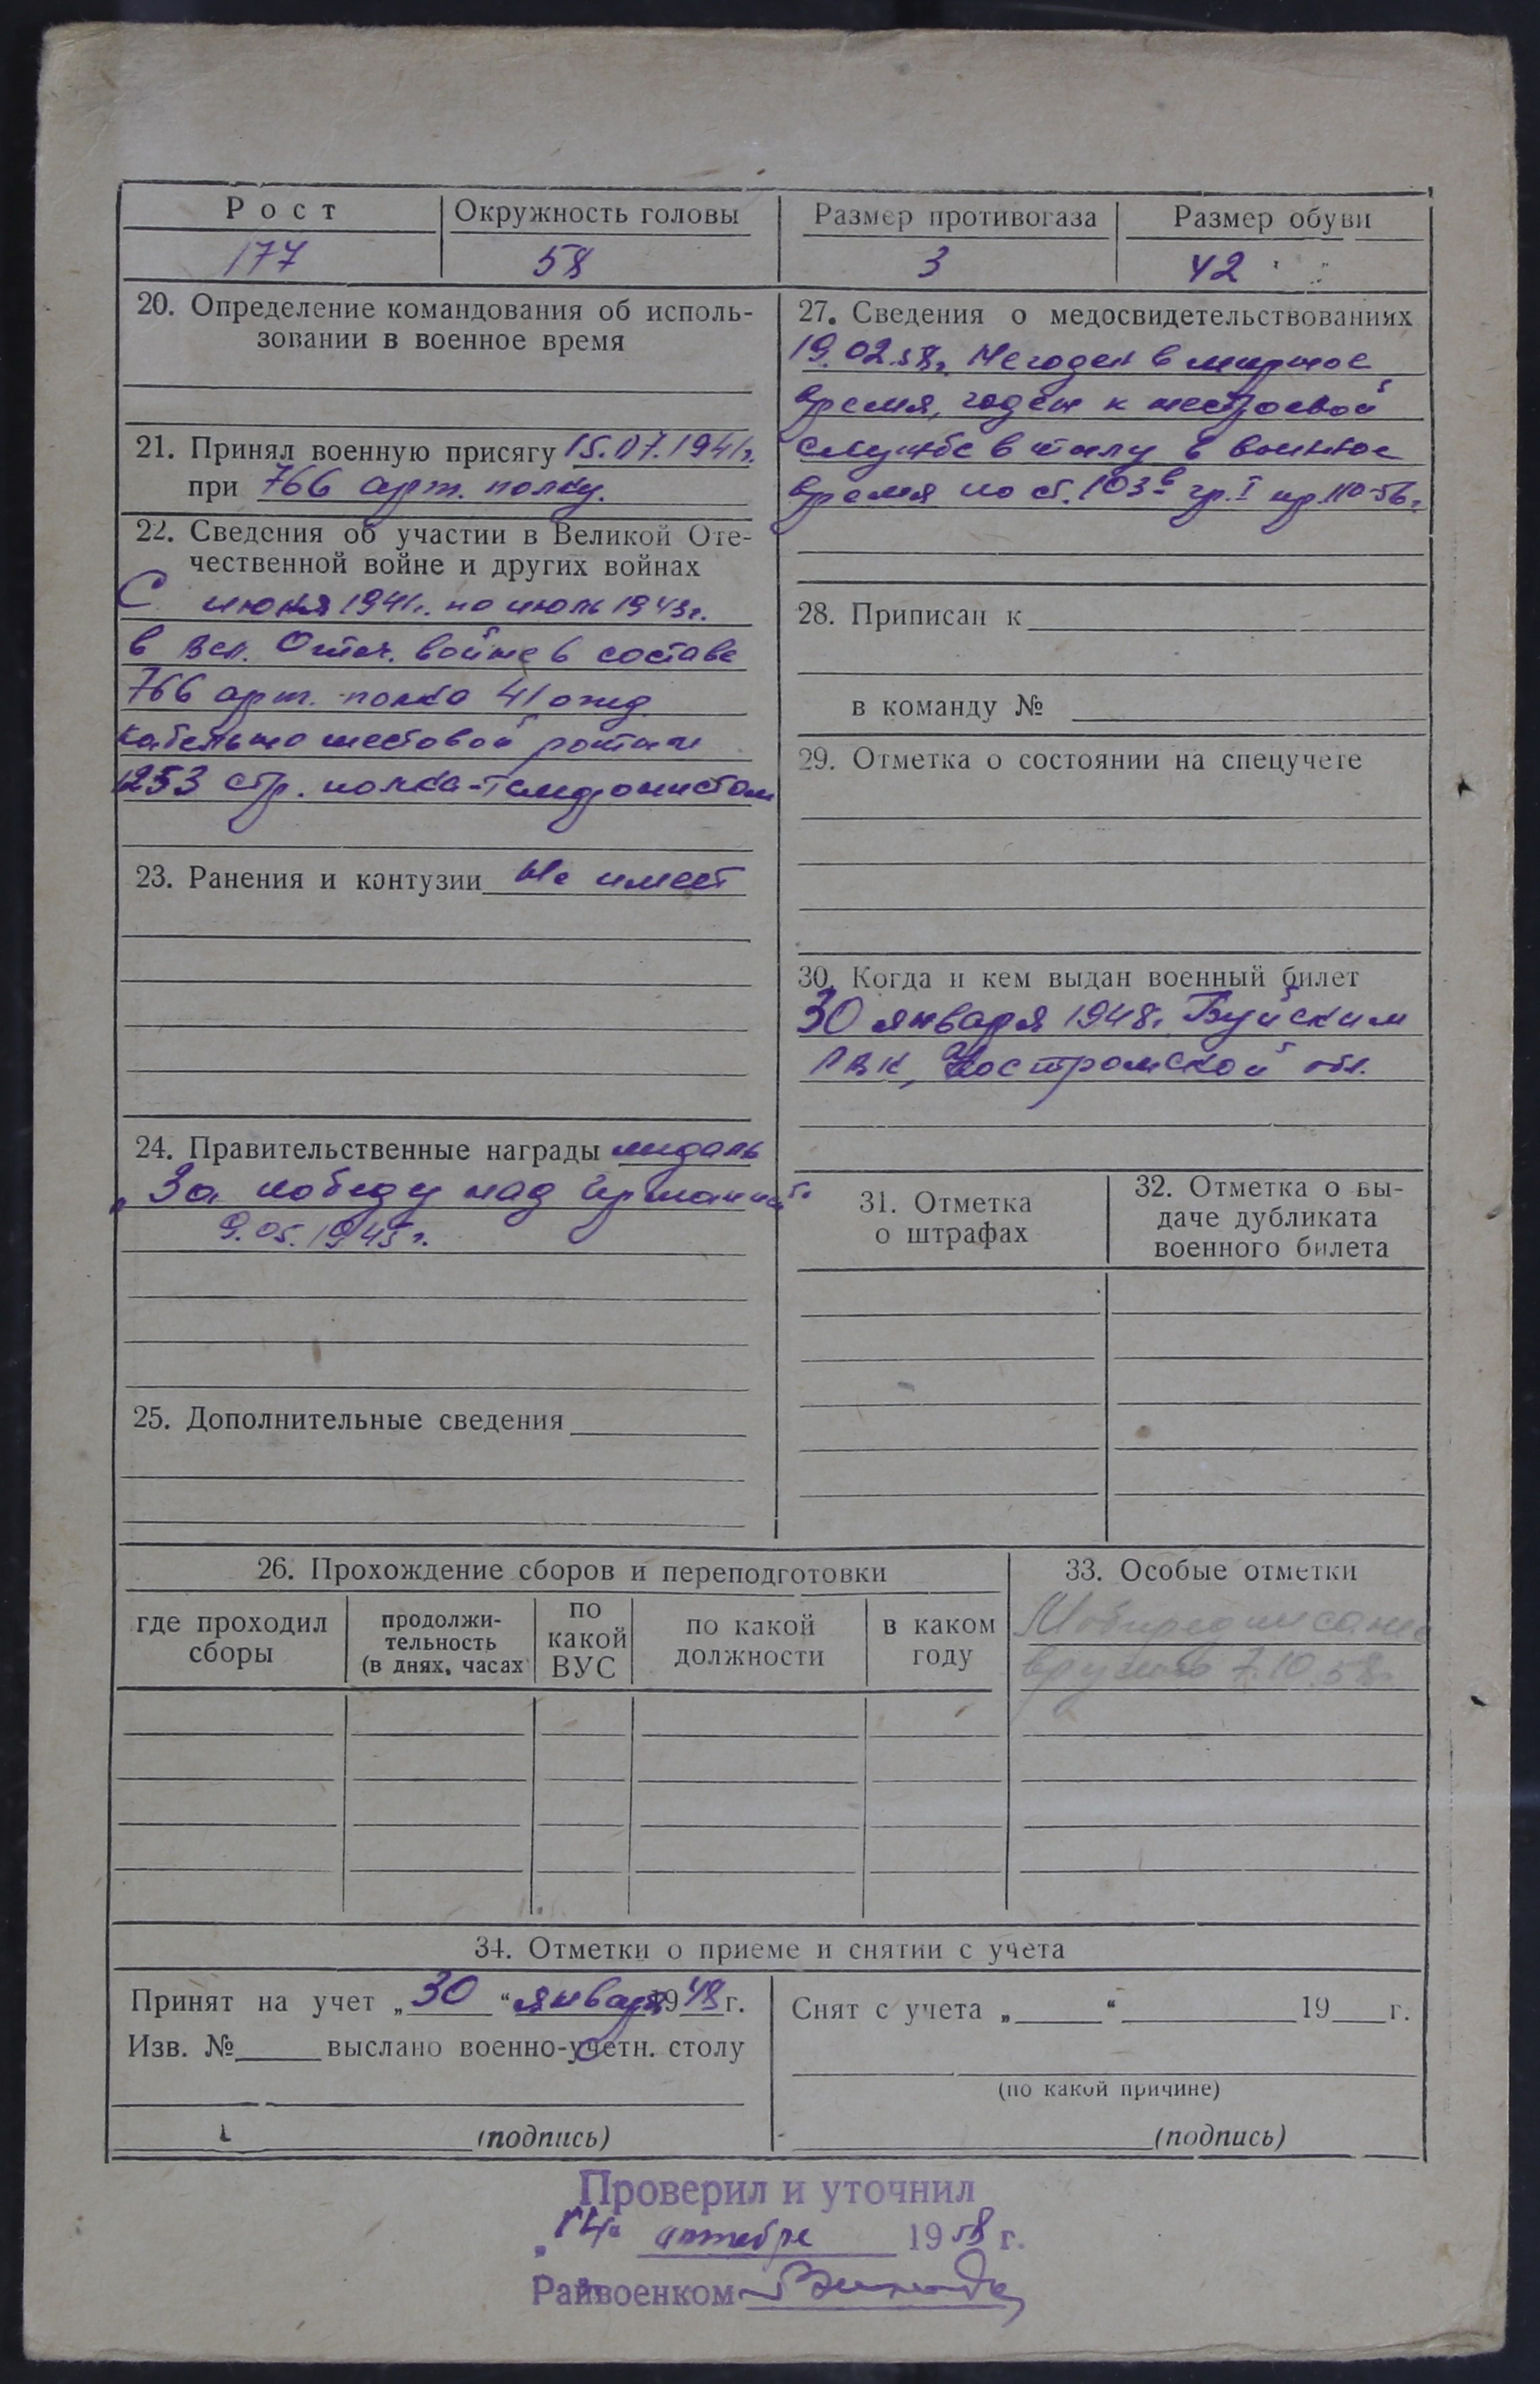 Рост
Окружность головы
Размер противогаза
Размер обуви
177
58
3
42
20. Определение командования об исполь-
зовании в военное время
21. Принял военную присягу 15.07.1941г.
при 766 арт. полку.
22. Сведения об участии в Великой Оте-
чественной войне и других войнах
С июня 1941г. по июль 1943г.
в Вел. Отеч. войне в составе
766 арт. полка 41 отд.
кабельно шестовой роты
1253 стр. полка - телефонистом
23. Ранения и контузии Не имеет
24. Правительственные награды медаль
„За победу над Германией"
9.05.1945г.
25. Дополнительные сведения
27. Сведения о медосвидетельствованиях
19.02.58г. Негоден в мирное
время, годен к нестроевой
службе в тылу в военное
время по ст. 103в гр. I пр. 110-56г.
28. Приписан к
в команду №
29. Отметка о состоянии на спецучете
30. Когда и кем выдан военный билет
30 января 1948г. Буйским
РВК, Костромской обл.
31. Отметка
о штрафах
32. Отметка о вы-
даче дубликата
военного билета
26. Прохождение сборов и переподготовки
где проходил
сборы
продолжи-
тельность
(в днях, часах
по
какой
ВУС
по какой
должности
в каком
году
33. Особые отметки
Мобпредписание
вручено 7.10.58г.
34. Отметки о приеме и снятии с учета
Принят на учет „30" января 1948 г.
Изв. № выслано военно-учетн. столу
(подпись)
Снят с учета „ " 19 г.
(по какой причине)
(подпись)
Проверил и уточнил
„14" октября 1958 г.
Райвоенком